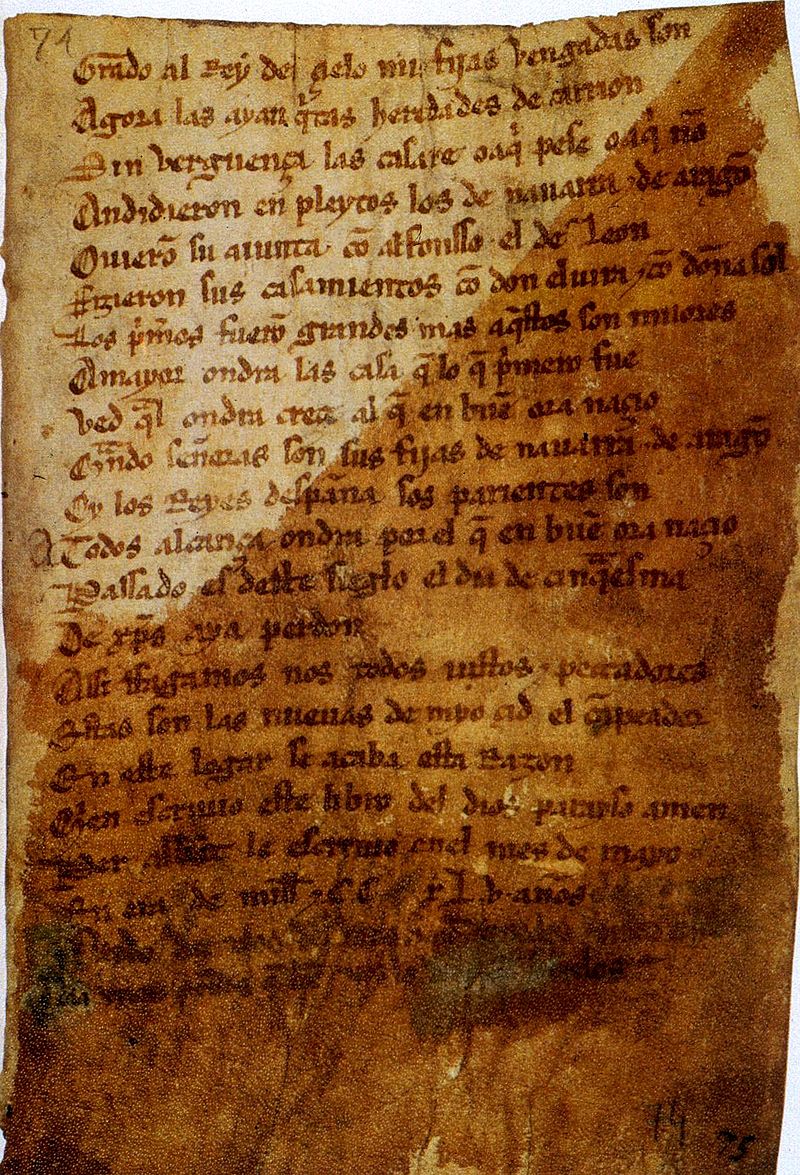 74
Grado al Rey de çielo mis fijas vengadas son
Agora las ayan q̃tas heredades de carrion
Sin verguença las casare o aq̃ pese o aq̃ nõ
Andidieron en pleytos los de nauarra ⁊ de aragõ
Ouierõ su aiunta cõ alfonsso el de Leon
Fizieron sus casamientos cõ don eluira ⁊ cõ doña sol
Los p̃meros fuerõ grandes mas aq̃stos son miiores
A mayor ondra las casa q̃ lo q̃ p̃mero fue
Ved q̃l ondra creçe al q̃ en buẽ ora naçio
Q̃ndo señoras son sus fijas de nauarra ⁊ de aragõ
Oy los Reyes despaña sos parientes son
A Todos alcança ondra por el q̃ en buẽ ora naçio
Passado es deste sieglo el dia de cinq̃esma
De xp̃s aya perdon
Assi ffagamos nos todos iustos ⁊ peccadores
Estas son las nueuas de myo çid el cãpeador
En este logar se acaba esta Razon
Quien escriuio este libro del dios parayso amen
Per abbat le escriuio en el mes de mayo
En era de mill ⁊ C.C xL.v. años
74
75